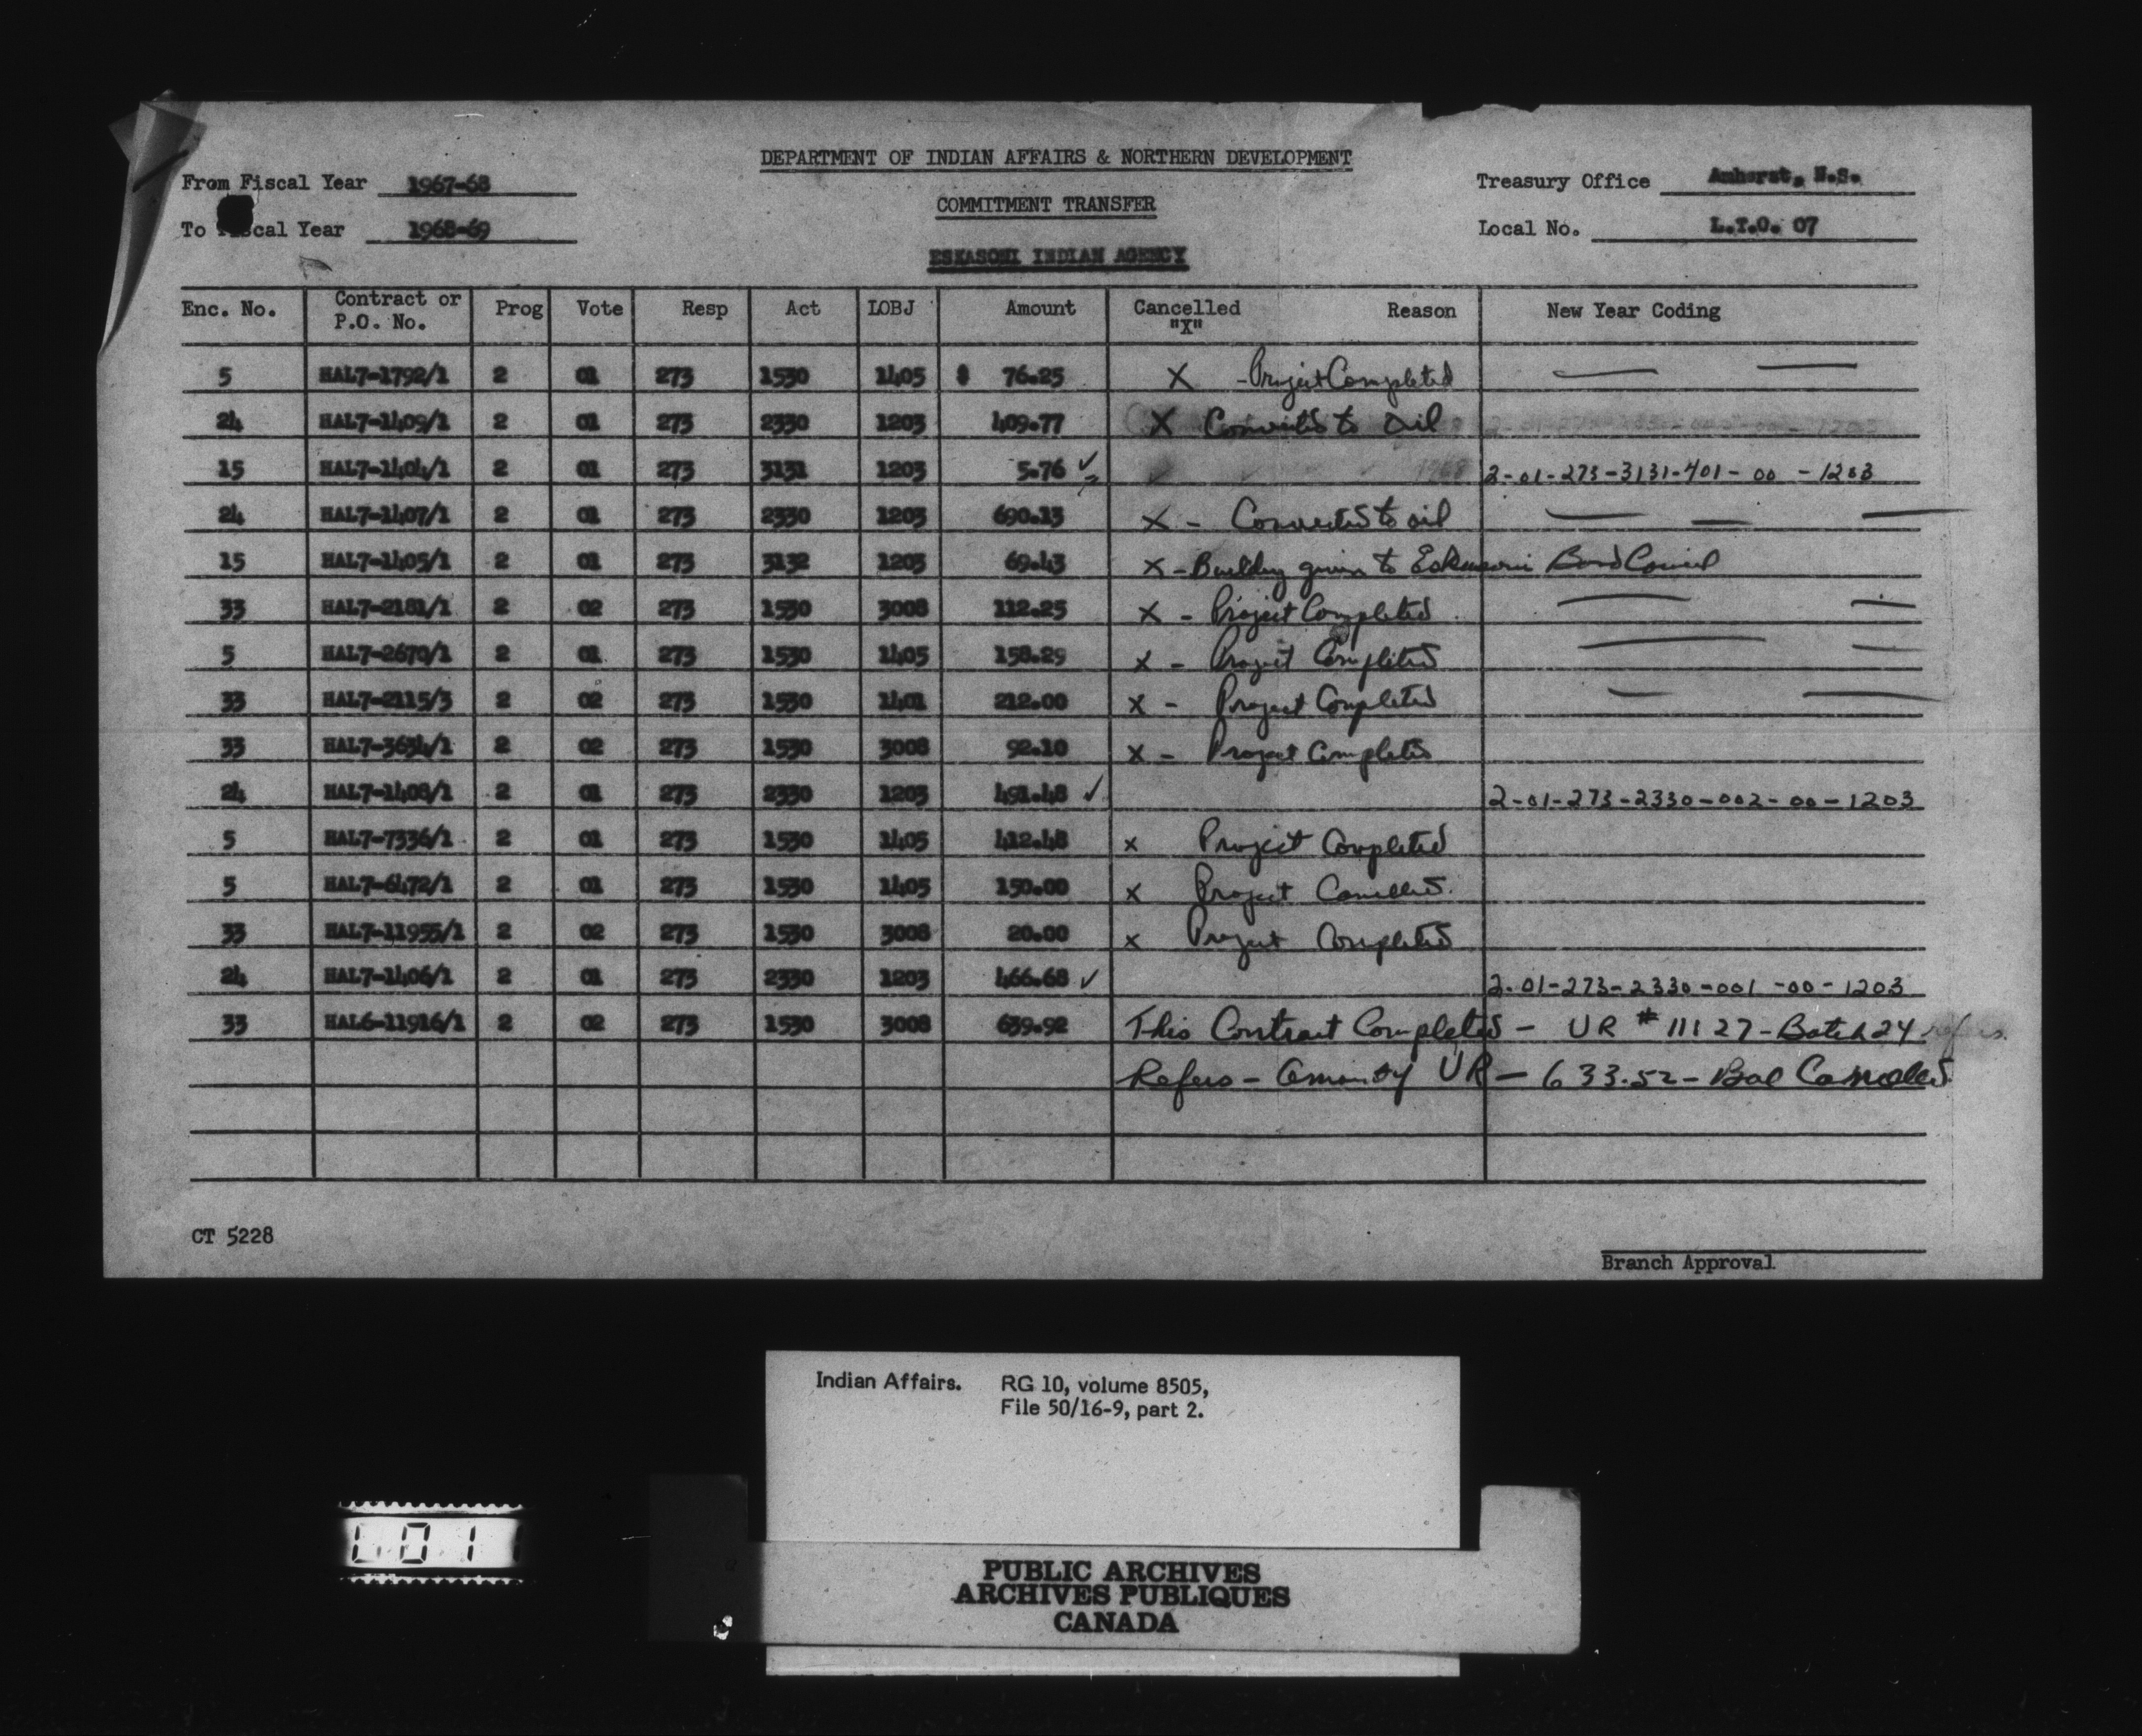 DEPARTMENT OF INDIAN AFFAIRS & NORTHERN DEVELOPMENT
From Fiscal Year 1967-68
COMMITMENT TRANSFER
Treasury Office Amherst, N.S.
To Fiscal Year 1968-69
Local No. L.T.O. 07
ESKASONI INDIAN AGENCY
Enc. No. Contract or P.O. No. Prog Vote Resp Act LOBJ Amount Cancelled "X" Reason New Year Coding
5 HAL7-1792/1 2 01 273 1530 1405 $ 76.25 X - Project Completed — —
24 HAL7-1409/1 2 01 273 2330 1203 409.77 X Converted to Oil
15 HAL7-1404/1 2 01 273 3131 1203 5.76 ✓ 2-01-273-3131-401-00-1203
24 HAL7-1407/1 2 01 273 2330 1203 690.13 X - Converted to oil — — —
15 HAL7-1405/1 2 01 273 3132 1203 69.43 X - Building given to Eskasoni Band Council
33 HAL7-2181/1 2 02 273 1530 3008 112.25 X - Project Completed — —
5 HAL7-2670/1 2 01 273 1530 1405 158.29 X - Project Completed — —
33 HAL7-2115/3 2 02 273 1530 1401 212.00 X - Project Completed — —
33 HAL7-3634/1 2 02 273 1530 3008 92.10 X - Project Completed
24 HAL7-1408/1 2 01 273 2330 1203 491.48 ✓ 2-01-273-2330-002-00-1203
5 HAL7-7336/1 2 01 273 1530 1405 412.48 X Project Completed
5 HAL7-6472/1 2 01 273 1530 1405 150.00 X Project Cancelled.
33 HAL7-11955/1 2 02 273 1530 3008 20.00 X Project Completed
24 HAL7-1406/1 2 01 273 2330 1203 466.68 ✓ 2-01-273-2330-001-00-1203
33 HAL6-11916/1 2 02 273 1530 3008 639.92 This Contract Completed - UR # 11127 - Batch 24 refers.
Refers - UR - 633.52 - Bal Cancelled.
CT 5228
Branch Approval
Indian Affairs. RG 10, volume 8505,
File 50/16-9, part 2.
PUBLIC ARCHIVES
ARCHIVES PUBLIQUES
CANADA